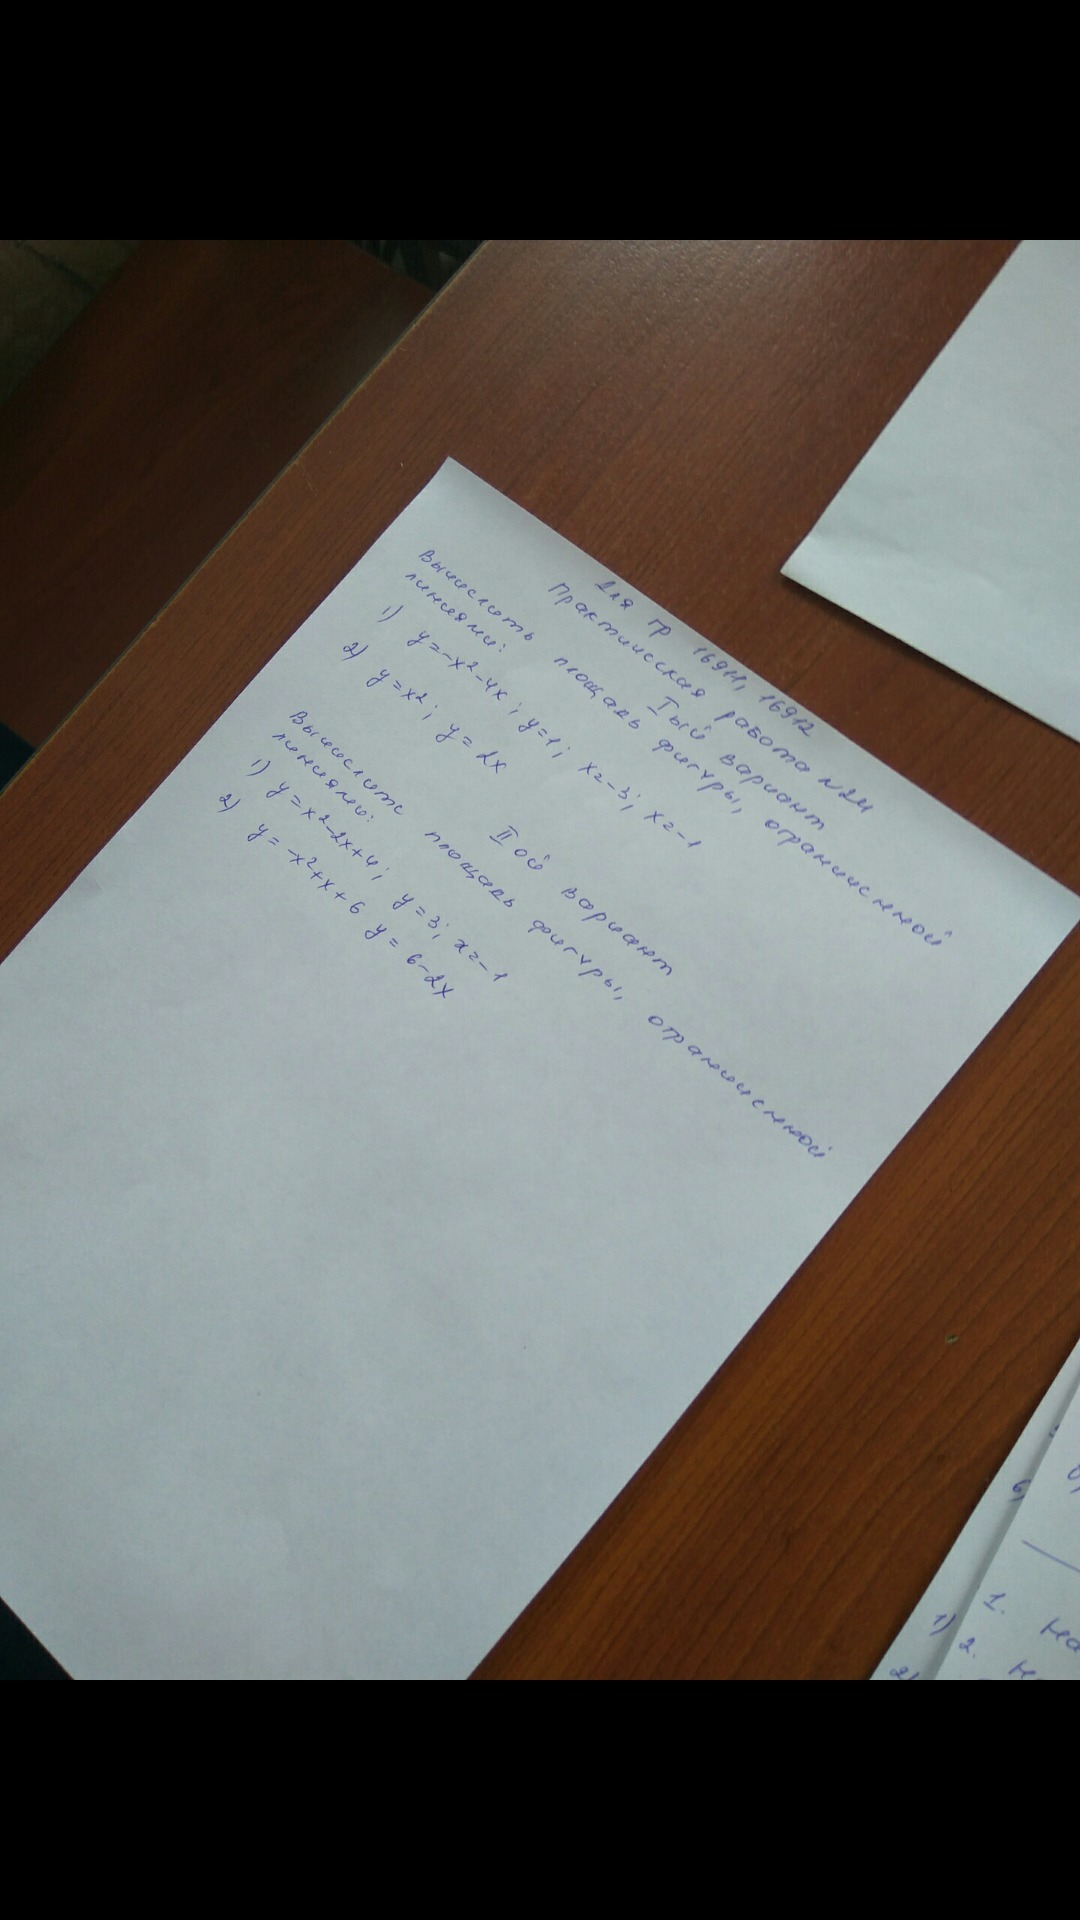 Для гр 16911, 16912
Практическая работа №24
I ый вариант
Вычислить площадь фигуры, ограниченной
линиями:
1) y=-x²-4x; y=1; x=-3; x=-1
2) y=x²; y=2x
II ой вариант
Вычислить площадь фигуры, ограниченной
линиями:
1) y=x²-2x+4; y=3; x=-1
2) y=-x²+x+6 y=6-2x
6)
1. На
1) 2. Н
2)